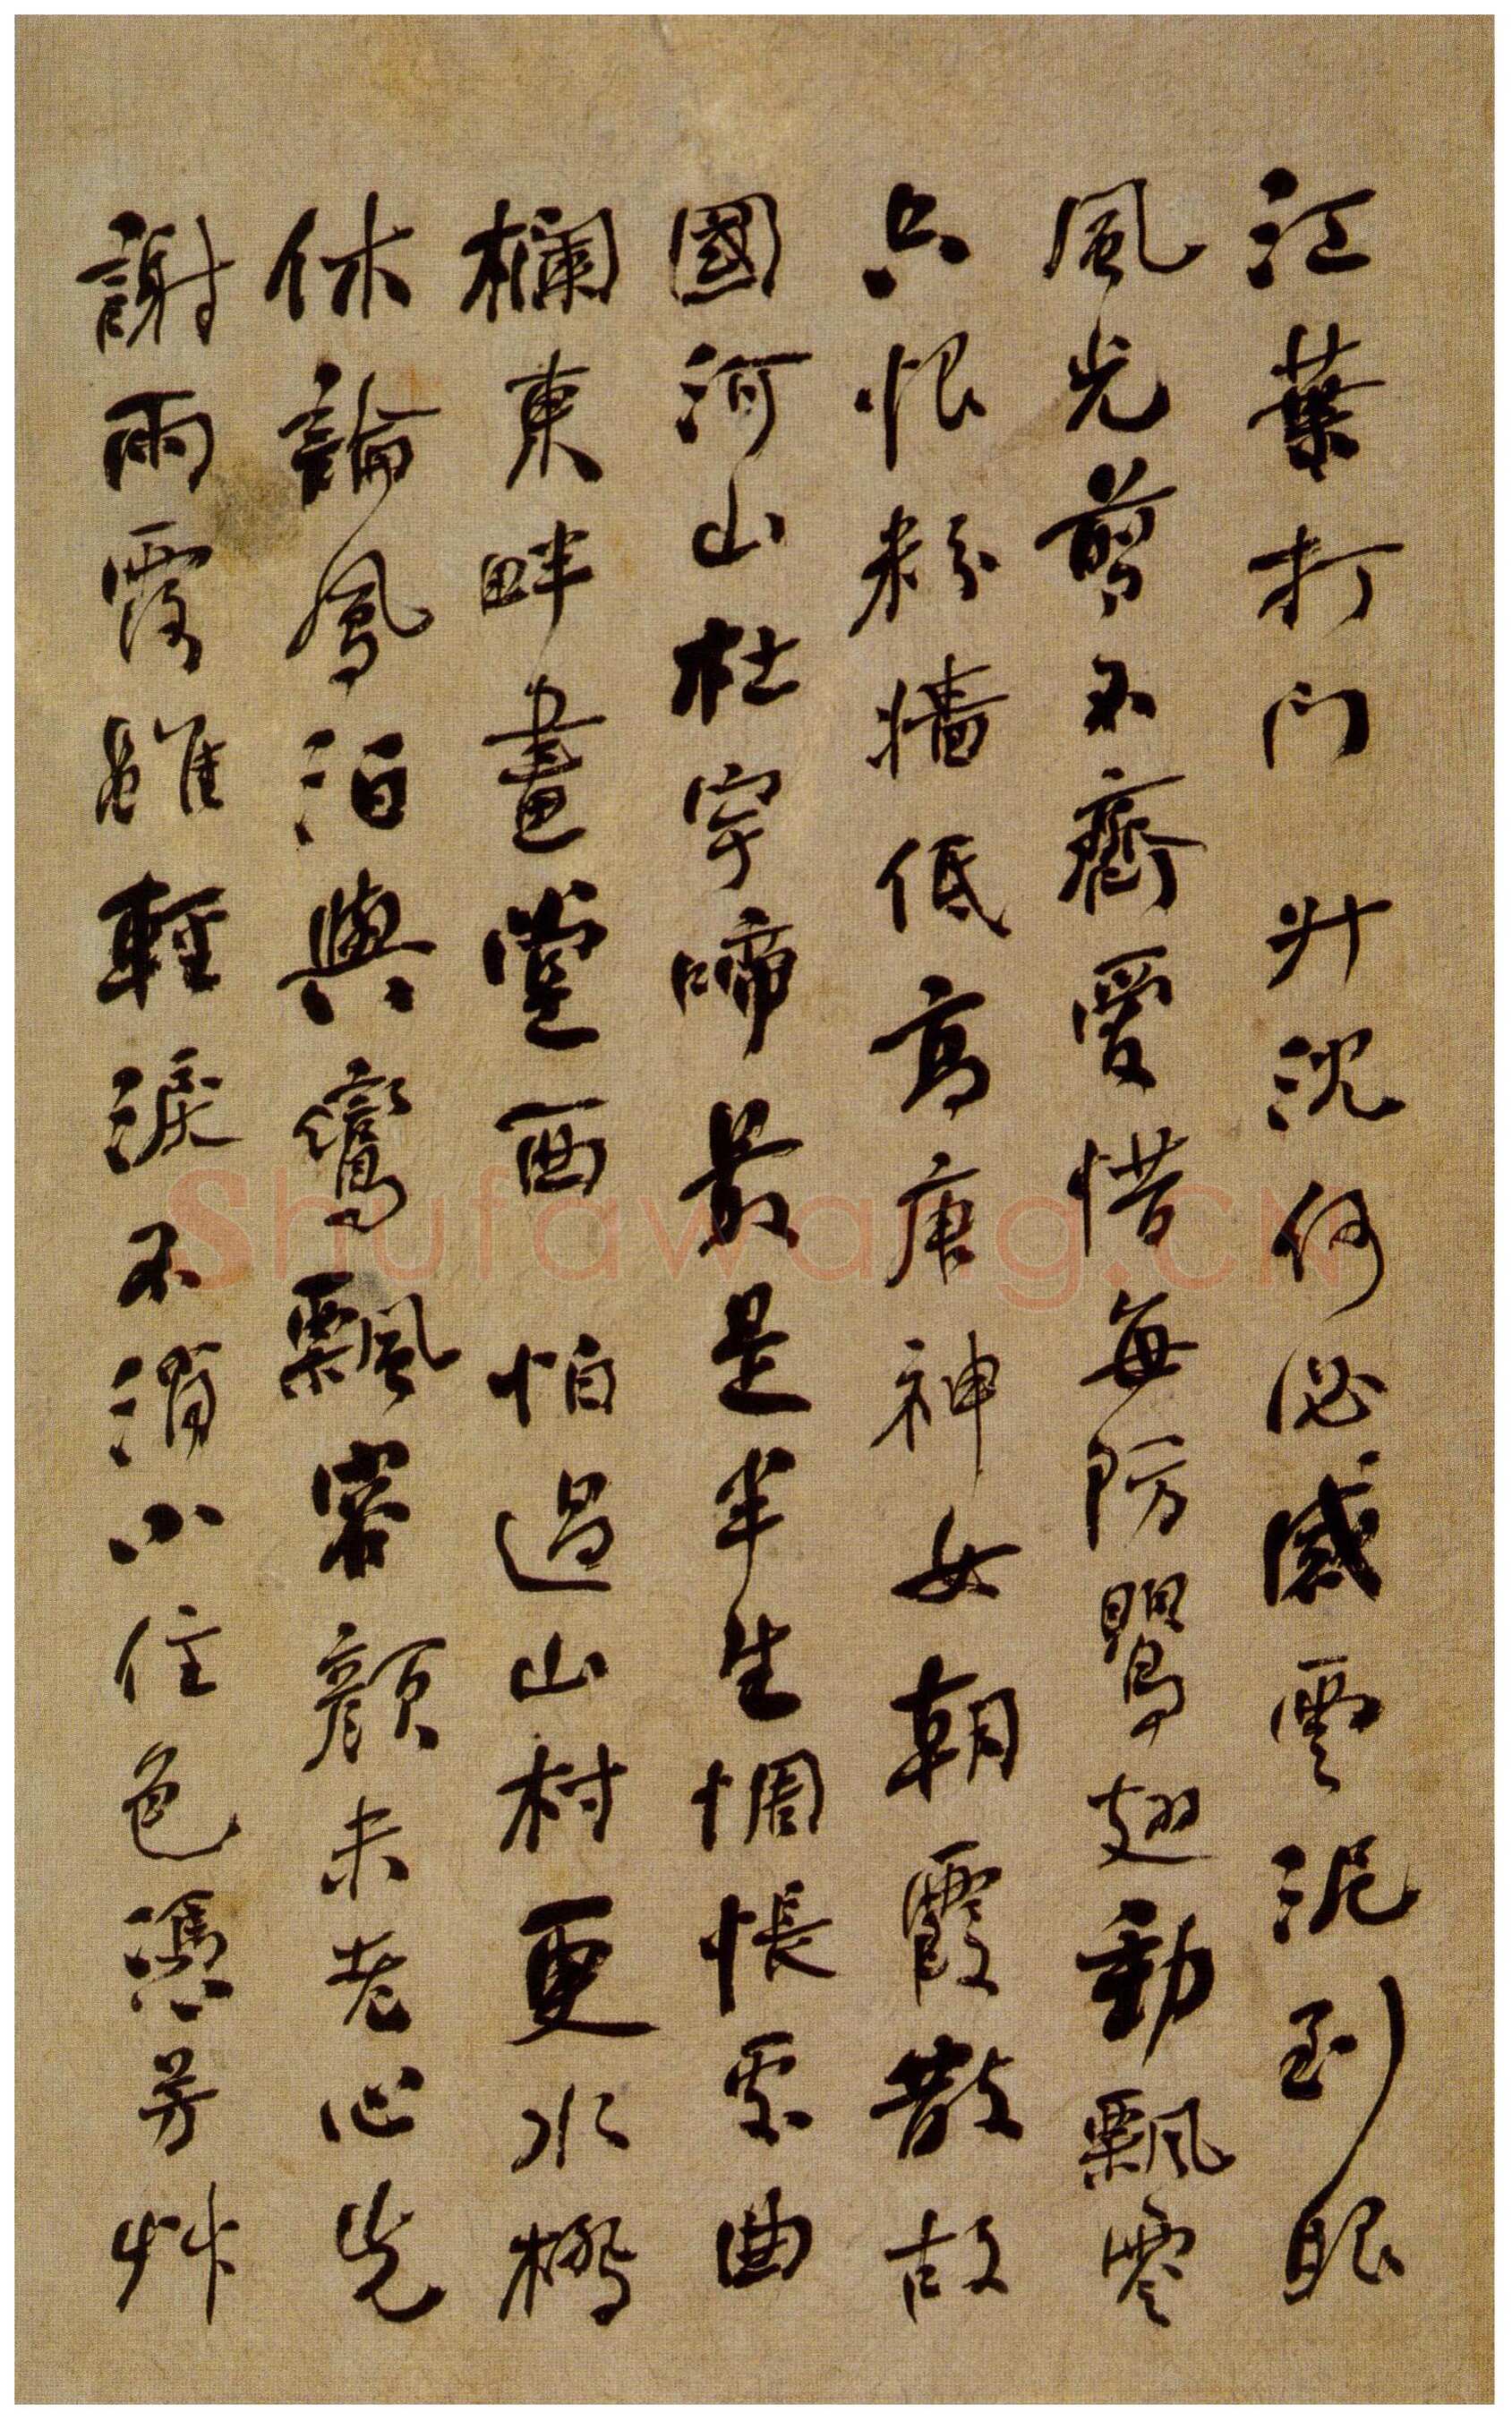 江葉打門 升沈何必感雲泥到眼
風光剪不齊愛惜每防鸎翅動飄零
只恨粉牆低高唐神女朝霞散故
國河山杜宇啼最是半生惆悵處曲
欄東畔畫堂西 怕過山村更水橋
休論鳳泊與鸞飄容顏未老心先
謝雨露雖輕淚不消小住色憑芳艸
Shufawang.CN